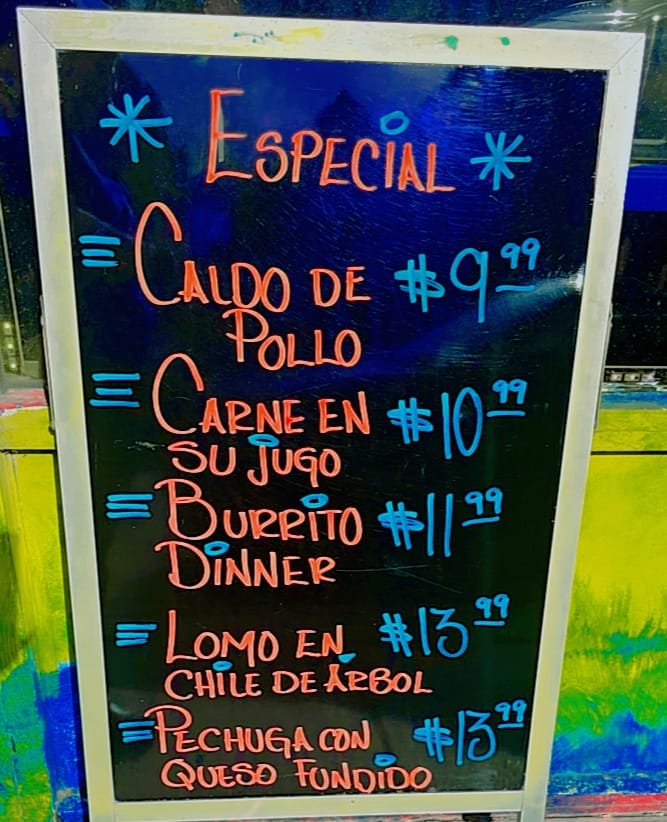 * ESPECIAL *
= CALDO DE $9.99
POLLO
= CARNE EN $10.99
SU JUGO
= BURRITO $11.99
DINNER
= LOMO EN $13.99
CHILE DE ÁRBOL
= PECHUGA CON $13.99
QUESO FUNDIDO